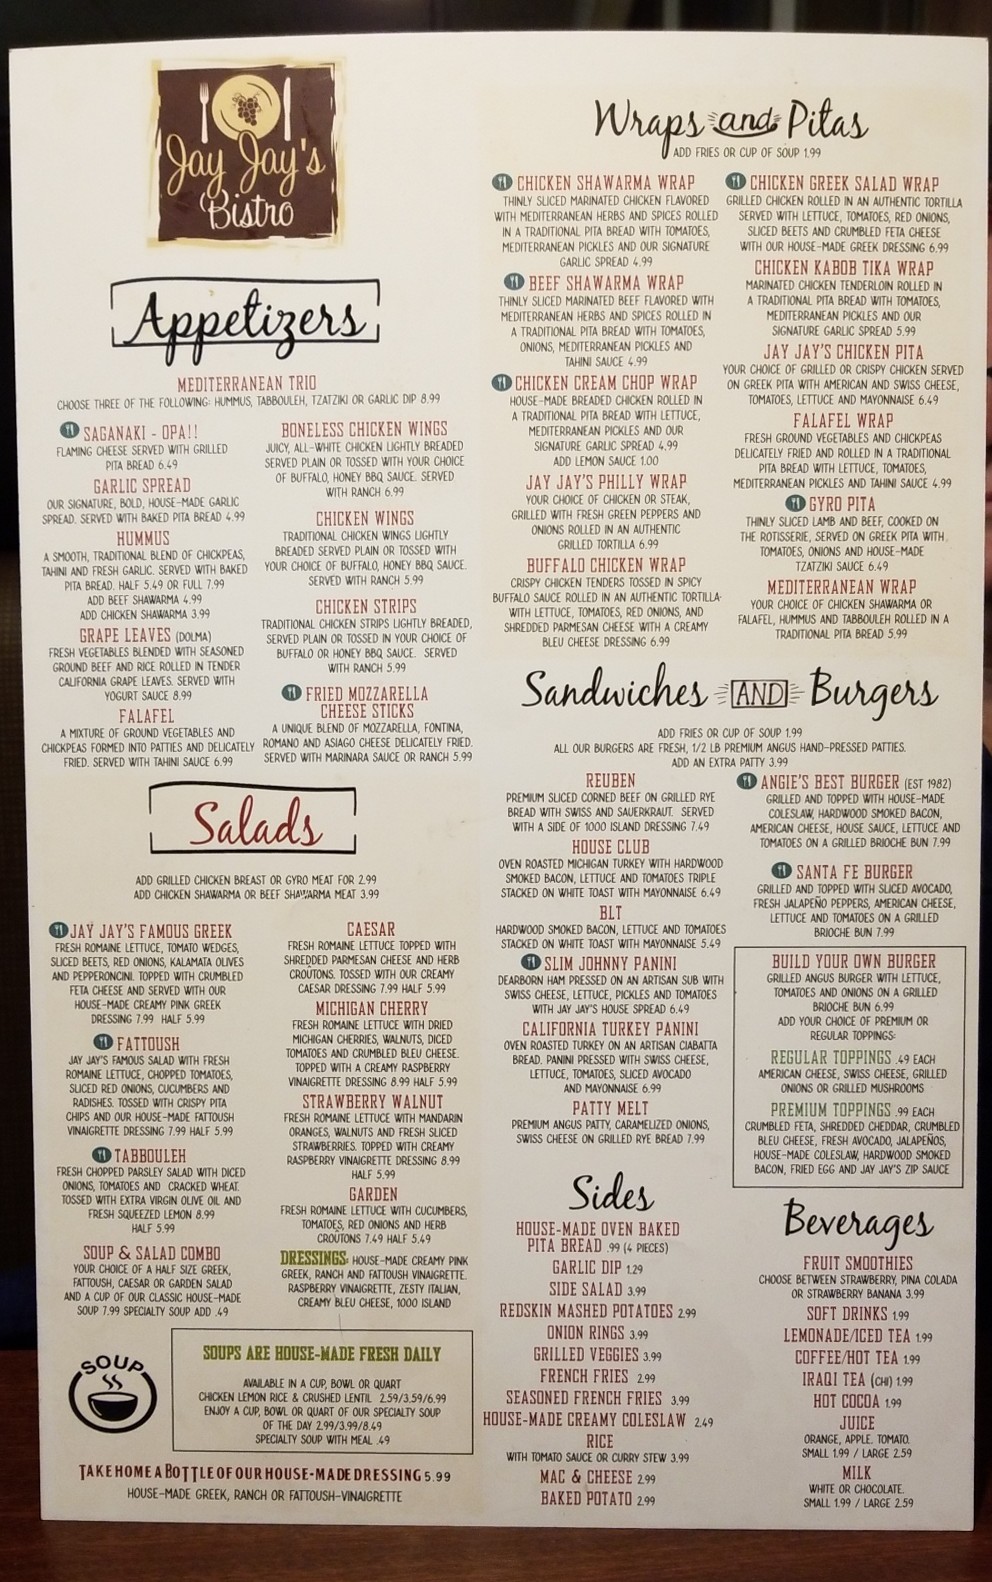 Jay Jay's
Bistro
Appetizers
MEDITERRANEAN TRIO
CHOOSE THREE OF THE FOLLOWING: HUMMUS, TABBOULEH, TZATZIKI OR GARLIC DIP 8.99
SAGANAKI - OPA!!
FLAMING CHEESE SERVED WITH GRILLED
PITA BREAD 6.49
GARLIC SPREAD
OUR SIGNATURE, BOLD, HOUSE-MADE GARLIC
SPREAD. SERVED WITH BAKED PITA BREAD 4.99
HUMMUS
A SMOOTH, TRADITIONAL BLEND OF CHICKPEAS,
TAHINI AND FRESH GARLIC. SERVED WITH BAKED
PITA BREAD. HALF 5.49 OR FULL 7.99
ADD BEEF SHAWARMA 4.99
ADD CHICKEN SHAWARMA 3.99
GRAPE LEAVES (DOLMA)
FRESH VEGETABLES BLENDED WITH SEASONED
GROUND BEEF AND RICE ROLLED IN TENDER
CALIFORNIA GRAPE LEAVES. SERVED WITH
YOGURT SAUCE 8.99
FALAFEL
A MIXTURE OF GROUND VEGETABLES AND
CHICKPEAS FORMED INTO PATTIES AND DELICATELY
FRIED. SERVED WITH TAHINI SAUCE 6.99
BONELESS CHICKEN WINGS
JUICY, ALL-WHITE CHICKEN LIGHTLY BREADED
SERVED PLAIN OR TOSSED WITH YOUR CHOICE
OF BUFFALO, HONEY BBQ SAUCE. SERVED
WITH RANCH 6.99
CHICKEN WINGS
TRADITIONAL CHICKEN WINGS LIGHTLY
BREADED SERVED PLAIN OR TOSSED WITH
YOUR CHOICE OF BUFFALO, HONEY BBQ SAUCE.
SERVED WITH RANCH 5.99
CHICKEN STRIPS
TRADITIONAL CHICKEN STRIPS LIGHTLY BREADED,
SERVED PLAIN OR TOSSED IN YOUR CHOICE OF
BUFFALO OR HONEY BBQ SAUCE. SERVED
WITH RANCH 5.99
FRIED MOZZARELLA
CHEESE STICKS
A UNIQUE BLEND OF MOZZARELLA, FONTINA,
ROMANO AND ASIAGO CHEESE DELICATELY FRIED.
SERVED WITH MARINARA SAUCE OR RANCH 5.99
Salads
ADD GRILLED CHICKEN BREAST OR GYRO MEAT FOR 2.99
ADD CHICKEN SHAWARMA OR BEEF SHAWARMA MEAT 3.99
JAY JAY'S FAMOUS GREEK
FRESH ROMAINE LETTUCE, TOMATO WEDGES,
SLICED BEETS, RED ONIONS, KALAMATA OLIVES
AND PEPPERONCINI. TOPPED WITH CRUMBLED
FETA CHEESE AND SERVED WITH OUR
HOUSE-MADE CREAMY PINK GREEK
DRESSING 7.99 HALF 5.99
FATTOUSH
JAY JAY'S FAMOUS SALAD WITH FRESH
ROMAINE LETTUCE, CHOPPED TOMATOES,
SLICED RED ONIONS, CUCUMBERS AND
RADISHES. TOSSED WITH CRISPY PITA
CHIPS AND OUR HOUSE-MADE FATTOUSH
VINAIGRETTE DRESSING 7.99 HALF 5.99
TABBOULEH
FRESH CHOPPED PARSLEY SALAD WITH DICED
ONIONS, TOMATOES AND CRACKED WHEAT.
TOSSED WITH EXTRA VIRGIN OLIVE OIL AND
FRESH SQUEEZED LEMON 8.99
HALF 5.99
SOUP & SALAD COMBO
YOUR CHOICE OF A HALF SIZE GREEK,
FATTOUSH, CAESAR OR GARDEN SALAD
AND A CUP OF OUR CLASSIC HOUSE-MADE
SOUP 7.99 SPECIALTY SOUP ADD .49
CAESAR
FRESH ROMAINE LETTUCE TOPPED WITH
SHREDDED PARMESAN CHEESE AND HERB
CROUTONS. TOSSED WITH OUR CREAMY
CAESAR DRESSING 7.99 HALF 5.99
MICHIGAN CHERRY
FRESH ROMAINE LETTUCE WITH DRIED
MICHIGAN CHERRIES, WALNUTS, DICED
TOMATOES AND CRUMBLED BLEU CHEESE.
TOPPED WITH A CREAMY RASPBERRY
VINAIGRETTE DRESSING 8.99 HALF 5.99
STRAWBERRY WALNUT
FRESH ROMAINE LETTUCE WITH MANDARIN
ORANGES, WALNUTS AND FRESH SLICED
STRAWBERRIES. TOPPED WITH CREAMY
RASPBERRY VINAIGRETTE DRESSING 8.99
HALF 5.99
GARDEN
FRESH ROMAINE LETTUCE WITH CUCUMBERS,
TOMATOES, RED ONIONS AND HERB
CROUTONS 7.49 HALF 5.49
DRESSINGS: HOUSE-MADE CREAMY PINK
GREEK, RANCH AND FATTOUSH VINAIGRETTE.
RASPBERRY VINAIGRETTE, ZESTY ITALIAN,
CREAMY BLEU CHEESE, 1000 ISLAND
SOUP
SOUPS ARE HOUSE-MADE FRESH DAILY
AVAILABLE IN A CUP, BOWL OR QUART
CHICKEN LEMON RICE & CRUSHED LENTIL 2.59/3.59/6.99
ENJOY A CUP, BOWL OR QUART OF OUR SPECIALTY SOUP
OF THE DAY 2.99/3.99/8.49
SPECIALTY SOUP WITH MEAL .49
TAKE HOME A BOTTLE OF OUR HOUSE-MADE DRESSING 5.99
HOUSE-MADE GREEK, RANCH OR FATTOUSH-VINAIGRETTE
Wraps and Pitas
ADD FRIES OR CUP OF SOUP 1.99
CHICKEN SHAWARMA WRAP
THINLY SLICED MARINATED CHICKEN FLAVORED
WITH MEDITERRANEAN HERBS AND SPICES ROLLED
IN A TRADITIONAL PITA BREAD WITH TOMATOES,
MEDITERRANEAN PICKLES AND OUR SIGNATURE
GARLIC SPREAD 4.99
BEEF SHAWARMA WRAP
THINLY SLICED MARINATED BEEF FLAVORED WITH
MEDITERRANEAN HERBS AND SPICES ROLLED IN
A TRADITIONAL PITA BREAD WITH TOMATOES,
ONIONS, MEDITERRANEAN PICKLES AND
TAHINI SAUCE 4.99
CHICKEN CREAM CHOP WRAP
HOUSE-MADE BREADED CHICKEN ROLLED IN
A TRADITIONAL PITA BREAD WITH LETTUCE,
MEDITERRANEAN PICKLES AND OUR
SIGNATURE GARLIC SPREAD 4.99
ADD LEMON SAUCE 1.00
JAY JAY'S PHILLY WRAP
YOUR CHOICE OF CHICKEN OR STEAK,
GRILLED WITH FRESH GREEN PEPPERS AND
ONIONS ROLLED IN AN AUTHENTIC
GRILLED TORTILLA 6.99
BUFFALO CHICKEN WRAP
CRISPY CHICKEN TENDERS TOSSED IN SPICY
BUFFALO SAUCE ROLLED IN AN AUTHENTIC TORTILLA
WITH LETTUCE, TOMATOES, RED ONIONS, AND
SHREDDED PARMESAN CHEESE WITH A CREAMY
BLEU CHEESE DRESSING 6.99
CHICKEN GREEK SALAD WRAP
GRILLED CHICKEN ROLLED IN AN AUTHENTIC TORTILLA
SERVED WITH LETTUCE, TOMATOES, RED ONIONS,
SLICED BEETS AND CRUMBLED FETA CHEESE
WITH OUR HOUSE-MADE GREEK DRESSING 6.99
CHICKEN KABOB TIKA WRAP
MARINATED CHICKEN TENDERLOIN ROLLED IN
A TRADITIONAL PITA BREAD WITH TOMATOES,
MEDITERRANEAN PICKLES AND OUR
SIGNATURE GARLIC SPREAD 5.99
JAY JAY'S CHICKEN PITA
YOUR CHOICE OF GRILLED OR CRISPY CHICKEN SERVED
ON GREEK PITA WITH AMERICAN AND SWISS CHEESE,
TOMATOES, LETTUCE AND MAYONNAISE 6.49
FALAFEL WRAP
FRESH GROUND VEGETABLES AND CHICKPEAS
DELICATELY FRIED AND ROLLED IN A TRADITIONAL
PITA BREAD WITH LETTUCE, TOMATOES,
MEDITERRANEAN PICKLES AND TAHINI SAUCE 4.99
GYRO PITA
THINLY SLICED LAMB AND BEEF, COOKED ON
THE ROTISSERIE, SERVED ON GREEK PITA WITH
TOMATOES, ONIONS AND HOUSE-MADE
TZATZIKI SAUCE 6.49
MEDITERRANEAN WRAP
YOUR CHOICE OF CHICKEN SHAWARMA OR
FALAFEL, HUMMUS AND TABBOULEH ROLLED IN A
TRADITIONAL PITA BREAD 5.99
Sandwiches AND Burgers
ADD FRIES OR CUP OF SOUP 1.99
ALL OUR BURGERS ARE FRESH, 1/2 LB PREMIUM ANGUS HAND-PRESSED PATTIES.
ADD AN EXTRA PATTY 3.99
REUBEN
PREMIUM SLICED CORNED BEEF ON GRILLED RYE
BREAD WITH SWISS AND SAUERKRAUT. SERVED
WITH A SIDE OF 1000 ISLAND DRESSING 7.49
HOUSE CLUB
OVEN ROASTED MICHIGAN TURKEY WITH HARDWOOD
SMOKED BACON, LETTUCE AND TOMATOES TRIPLE
STACKED ON WHITE TOAST WITH MAYONNAISE 6.49
BLT
HARDWOOD SMOKED BACON, LETTUCE AND TOMATOES
STACKED ON WHITE TOAST WITH MAYONNAISE 5.49
SLIM JOHNNY PANINI
DEARBORN HAM PRESSED ON AN ARTISAN SUB WITH
SWISS CHEESE, LETTUCE, PICKLES AND TOMATOES
WITH JAY JAY'S HOUSE SPREAD 6.49
CALIFORNIA TURKEY PANINI
OVEN ROASTED TURKEY ON AN ARTISAN CIABATTA
BREAD. PANINI PRESSED WITH SWISS CHEESE,
LETTUCE, TOMATOES, SLICED AVOCADO
AND MAYONNAISE 6.99
PATTY MELT
PREMIUM ANGUS PATTY, CARAMELIZED ONIONS,
SWISS CHEESE ON GRILLED RYE BREAD 7.99
ANGIE'S BEST BURGER (EST 1982)
GRILLED AND TOPPED WITH HOUSE-MADE
COLESLAW, HARDWOOD SMOKED BACON,
AMERICAN CHEESE, HOUSE SAUCE, LETTUCE AND
TOMATOES ON A GRILLED BRIOCHE BUN 7.99
SANTA FE BURGER
GRILLED AND TOPPED WITH SLICED AVOCADO,
FRESH JALAPEÑO PEPPERS, AMERICAN CHEESE,
LETTUCE AND TOMATOES ON A GRILLED
BRIOCHE BUN 7.99
BUILD YOUR OWN BURGER
GRILLED ANGUS BURGER WITH LETTUCE,
TOMATOES AND ONIONS ON A GRILLED
BRIOCHE BUN 6.99
ADD YOUR CHOICE OF PREMIUM OR
REGULAR TOPPINGS:
REGULAR TOPPINGS .49 EACH
AMERICAN CHEESE, SWISS CHEESE, GRILLED
ONIONS OR GRILLED MUSHROOMS
PREMIUM TOPPINGS .99 EACH
CRUMBLED FETA, SHREDDED CHEDDAR, CRUMBLED
BLEU CHEESE, FRESH AVOCADO, JALAPEÑOS,
HOUSE-MADE COLESLAW, HARDWOOD SMOKED
BACON, FRIED EGG AND JAY JAY'S ZIP SAUCE
Sides
HOUSE-MADE OVEN BAKED
PITA BREAD .99 (4 PIECES)
GARLIC DIP 1.29
SIDE SALAD 3.99
REDSKIN MASHED POTATOES 2.99
ONION RINGS 3.99
GRILLED VEGGIES 3.99
FRENCH FRIES 2.99
SEASONED FRENCH FRIES 3.99
HOUSE-MADE CREAMY COLESLAW 2.49
RICE
WITH TOMATO SAUCE OR CURRY STEW 3.99
MAC & CHEESE 2.99
BAKED POTATO 2.99
Beverages
FRUIT SMOOTHIES
CHOOSE BETWEEN STRAWBERRY, PINA COLADA
OR STRAWBERRY BANANA 3.99
SOFT DRINKS 1.99
LEMONADE/ICED TEA 1.99
COFFEE/HOT TEA 1.99
IRAQI TEA (CHI) 1.99
HOT COCOA 1.99
JUICE
ORANGE, APPLE, TOMATO.
SMALL 1.99 / LARGE 2.59
MILK
WHITE OR CHOCOLATE.
SMALL 1.99 / LARGE 2.59